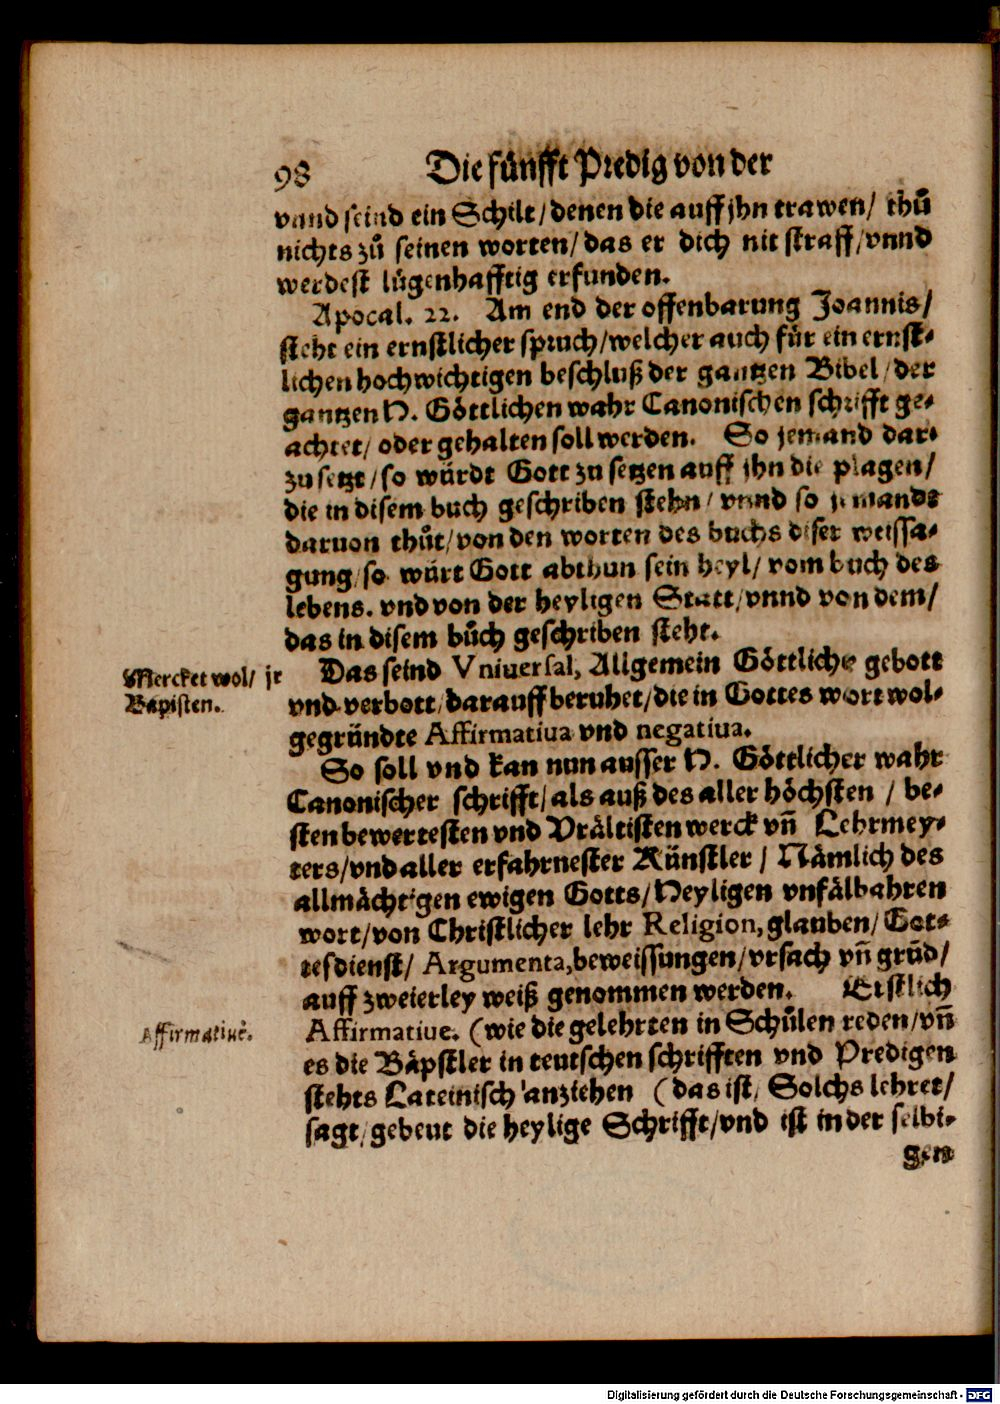 98 Die fünfft Predig von der
vnnd seind ein Schilt/ denen die auff jhn trawen/ thů
nichts zů seinen worten/ das er dich nit straff/ vnnd
werdest lügenhafftig erfunden.
Apocal. 22. Am end der offenbarung Joannis/
steht ein ernstlicher spruch/ welcher auch für ein ernst-
lichen hochwichtigen beschluß der gantzen Bibel/ der
gantzen H. Göttlichen wahr Canonischen schrifft ge-
achtet/ oder gehalten soll werden. So jemand dar-
zu setzt/ so würdt Gott zu setzen auff jhn die plagen/
die in disem buch geschriben stehn/ vnnd so jemandt
daruon thůt/ von den worten des buchs diser weissa-
gung/ so würt Gott abthun sein heyl/ vom buch des
lebens. vnd von der heyligen Statt/ vnnd von dem/
das in disem bůch geschriben steht.
Mercket wol/ jr
Bäpisten.
Das seind Vniuersal, Allgemein Göttliche gebott
vnd verbott/ darauff beruhet/ die in Gottes wort wol-
gegründte Affirmatiua vnd negatiua.
So soll vnd kan nun ausser H. Göttlicher wahr
Canonischer schrifft/ als auß des aller höchsten / be-
sten bewertesten vnd Vrältisten werck vñ Lehrmey-
ters/ vnd aller erfahrnester Künstler / Nämlich des
allmächtigen ewigen Gotts/ Heyligen vnfälbahren
wort/ von Christlicher lehr Religion, glauben/ Got-
tesdienst/ Argumenta, beweissungen/ vrsach vñ grũd/
auff zweierley weiß genommen werden. Erstlich
Affirmatiuè.
Affirmatiue. (wie die gelehrten in Schůlen reden/ vñ
es die Bäpstler in teutschen schrifften vnd Predigen
stehts Lateinisch anziehen (das ist/ Solchs lehret/
sagt/ gebeut die heylige Schrifft/ vnd ist in der selbi-
gen
Digitalisierung gefördert durch die Deutsche Forschungsgemeinschaft - DFG